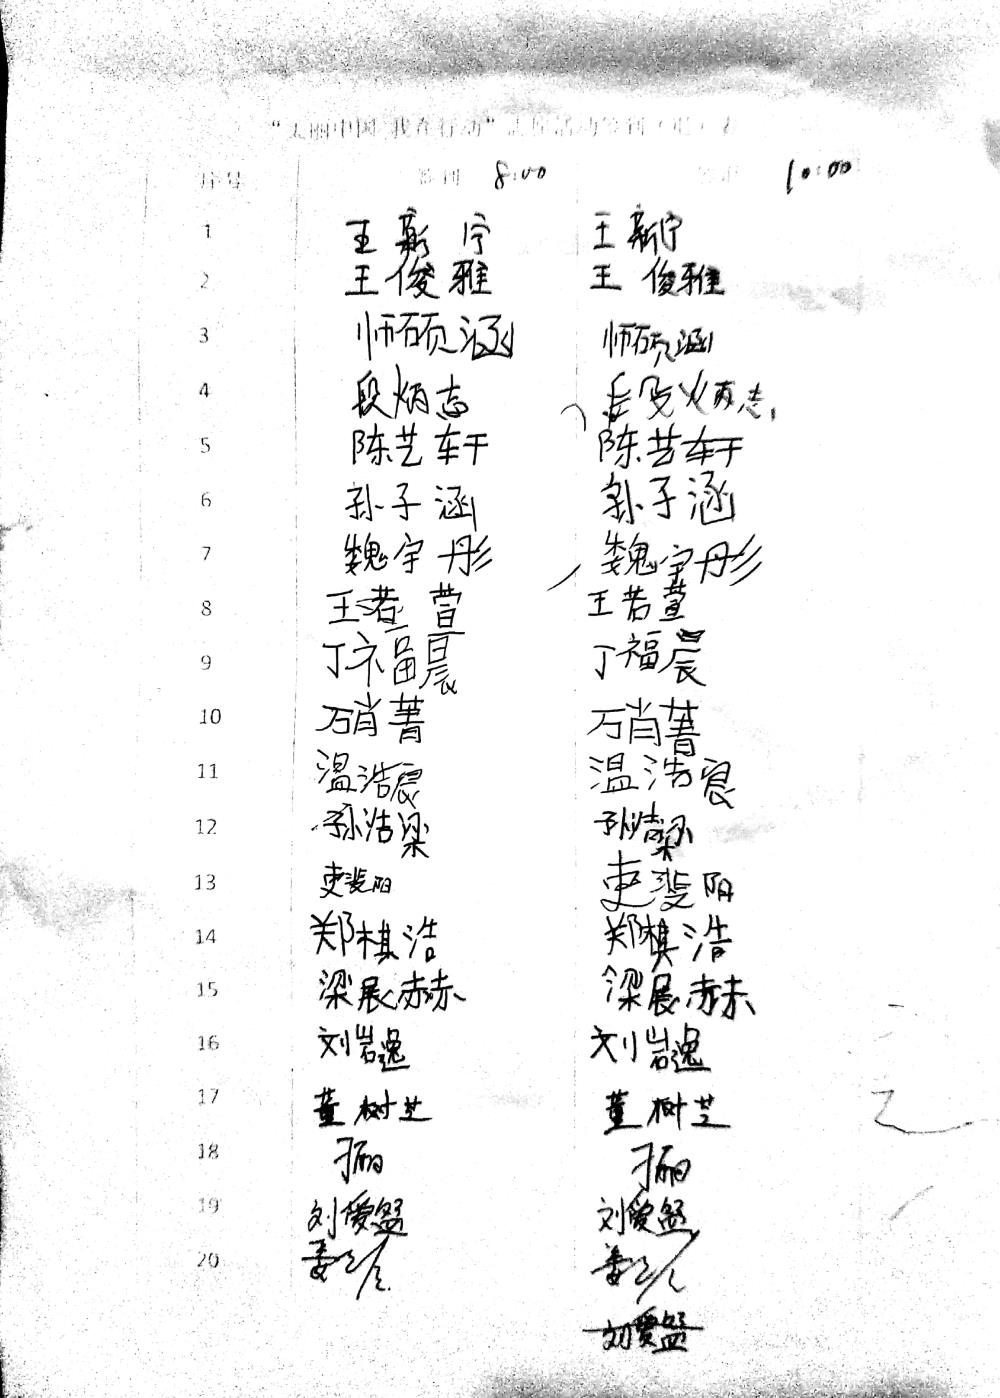 “美丽中国 我在行动”
序号 签到 8:00 10:00
1 王新宁 王新宁
2 王俊雅 王俊雅
3 师硕涵 师硕涵
4 段炳志 段炳志
5 陈艺轩 陈艺轩
6 孙子涵 孙子涵
7 魏宇彤 魏宇彤
8 王若萱 王若萱
9 丁福晨 丁福晨
10 石肖菁 石肖菁
11 温浩宸 温浩宸
12 孙浩梁 孙浩梁
13 吏斐阳 吏斐阳
14 郑棋浩 郑棋浩
15 梁展赫 梁展赫
16 刘岩逸 刘岩逸
17 董树芝 董树芝
18
19 刘爱 刘爱
20 姜 姜